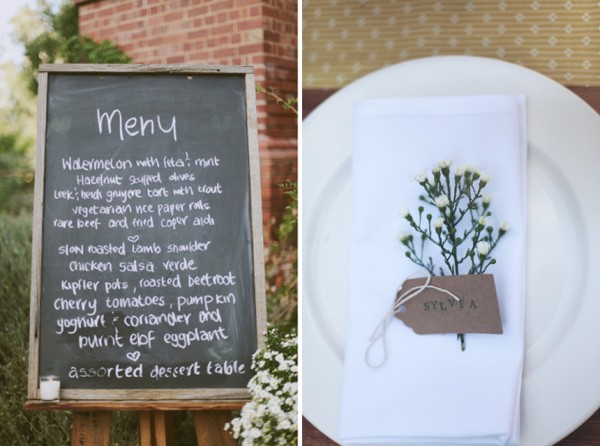 Menu
Watermelon with feta & mint
Hazelnut stuffed olives
leek & heidi gruyere tart with trout
vegetarian rice paper rolls
rare beef and fried caper aioli
slow roasted lamb shoulder
chicken salsa verde
kipfler pots, roasted beetroot
cherry tomatoes, pumpkin
yoghurt & coriander and
burnt eggplant
assorted dessert table
SYLVIA